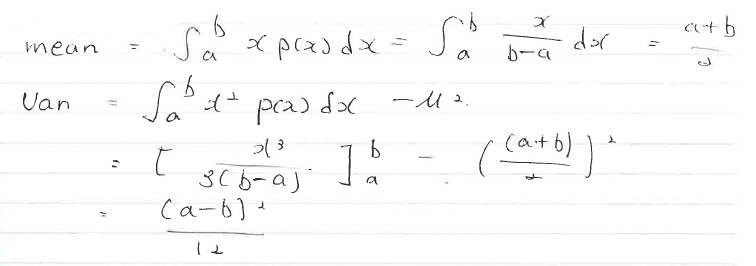 mean = ∫_a^b x p(x) dx = ∫_a^b x/(b-a) dx = (a+b)/2
Var = ∫_a^b x² p(x) dx - μ².
= [x³/(3(b-a))]_a^b - ((a+b)/2)²
= (a-b)²/12